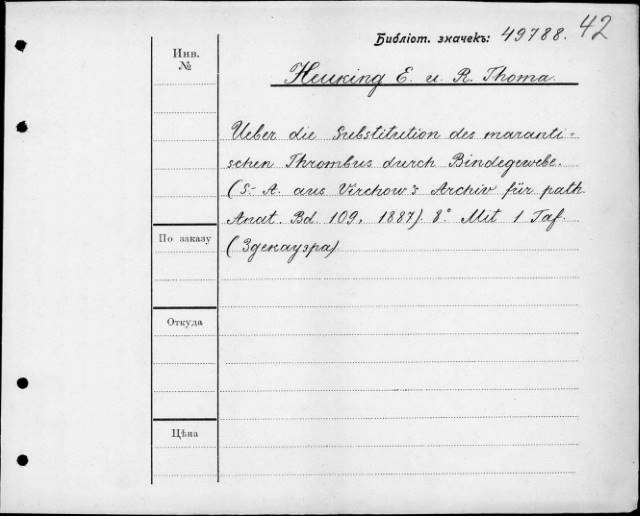 Библіот. значекъ: 49788. 42
Инв.
№
Heuking E. u. R. Thoma.
Ueber die Substitution des maranti-
schen Thrombus durch Bindegewebe.
(S.-A. aus Virchow's Archiv für path.
Anat. Bd. 109, 1887). 8° Mit 1 Taf.
По заказу
(Здекауэра)
Откуда
Цѣна